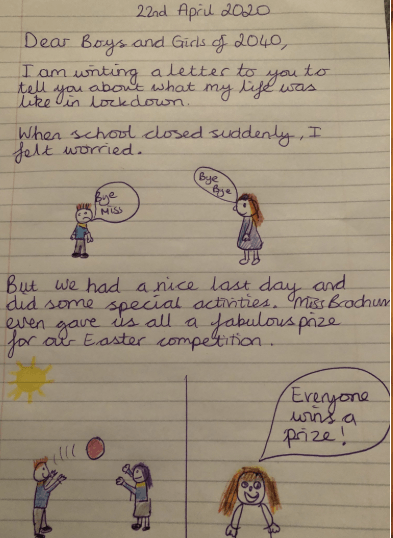 22nd April 2020
Dear Boys and Girls of 2040,
I am writing a letter to you to
tell you about what my life was
like in lockdown.
When school closed suddenly, I
felt worried.
Bye
Miss
Bye
Bye
But we had a nice last day and
did some special activities. Miss
even gave us all a fabulous prize
for our Easter competition.
Everyone
wins a
prize!